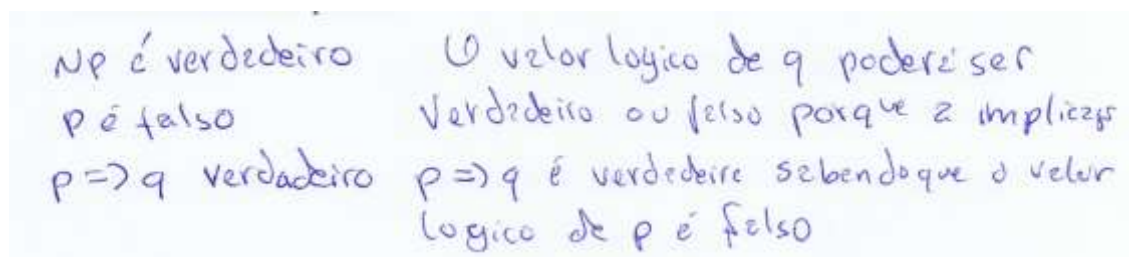 Np é verdadeiro
p é falso
p => q verdadeiro
O valor logico de q poderá ser
Verdadeiro ou falso porque a implicação
p => q é verdadeira sabendo que o valor
logico de p é falso